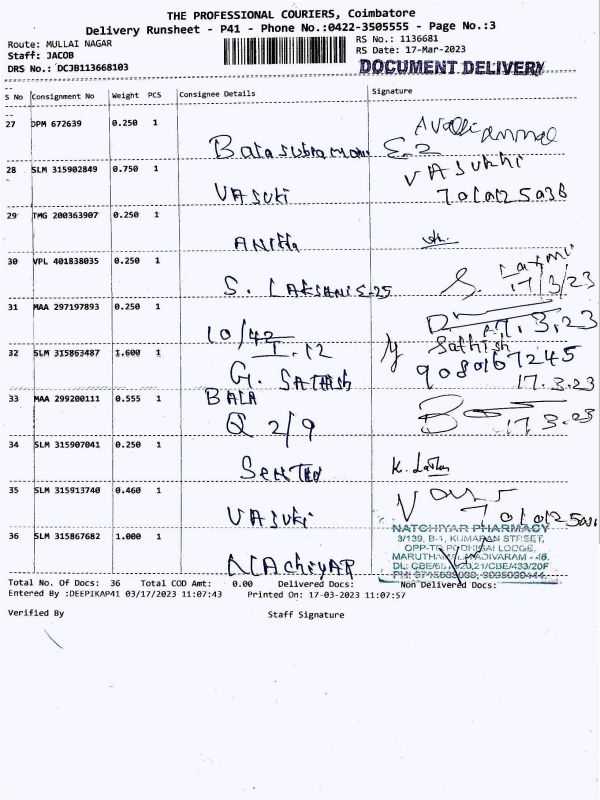 THE PROFESSIONAL COURIERS, Coimbatore
Delivery Runsheet - P41 - Phone No.:0422-3505555 - Page No.:3
Route: MULLAI NAGAR
RS No.: 1136681
Staff: JACOB
RS Date: 17-Mar-2023
DRS No.: DCJB113668103
DOCUMENT DELIVERY
S No Consignment No Weight PCS Consignee Details Signature
27 DPM 672639 0.250 1
Balasubramani E-2
28 SLM 315902849 0.750 1 VASUKHI
VASUKi 701012503B
29 TMG 200363907 0.250 1
ANITHA
30 VPL 401838035 0.250 1 S. Laxmi
S. LAKSHMI E-25 17/3/23
31 MAA 297197893 0.250 1 17.3.23
10/42
I.12
32 SLM 315863487 1.600 1 Sathish
G. SATHISH 9080167245
17.3.23
33 MAA 299200111 0.555 1 BALA
Q 2/9 17 3.23
34 SLM 315907041 0.250 1
35 SLM 315913740 0.460 1
VASUKi
36 SLM 315867682 1.000 1 NATCHIYAR PHARMACY
3/139, B-1, KUMARAN STREET,
OPP-TO PODHIGAI LODGE,
MARUTHAMALAI ADIVARAM - 46,
NAchiyAR
Total No. Of Docs: 36 Total COD Amt: 0.00 Delivered Docs: Non Delivered Docs:
Entered By :DEEPIKAP41 03/17/2023 11:07:43 Printed On: 17-03-2023 11:07:57
Verified By Staff Signature